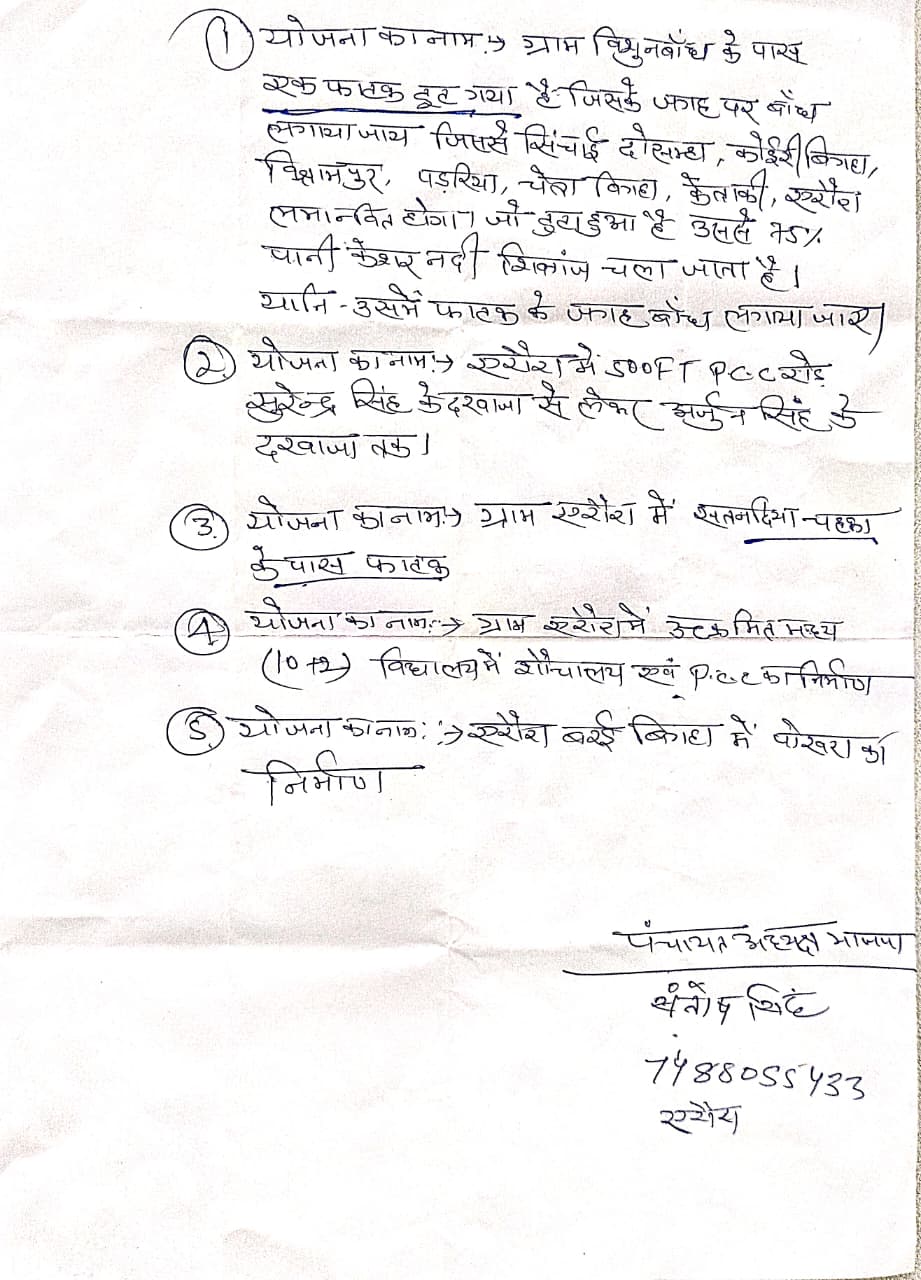 ① योजना का नाम:→ ग्राम विशुनबाँध के पास
एक फाटक टूट गया है जिसके जगह पर बाँध
लगाया जाय जिससे सिंचाई दोसम्हा, कोईरी बिगहा,
विश्रामपुर, पड़रिया, चेता बिगहा, केताकी, एरौरा
लभान्वित होगा। जो टुटा हुआ है उससे 75%
पानी केशर नदी में चला जाता है।
यानि - उसमें फाटक के जगह बाँध लगाया जाए।
② योजना का नाम:→ एरौरा में 500FT P.C.C रोड
सुरेन्द्र सिंह के दरवाजा से लेकर अर्जुन सिंह के
दरवाजा तक।
③ योजना का नाम:→ ग्राम एरौरा में सतनदिया
के पास फाटक
④ योजना का नाम:→ ग्राम एरौरा में उत्क्रमित मध्य
(10+2) विद्यालय में शौचालय एवं P.C.C का निर्माण
⑤ योजना का नाम:→ एरौरा बरई बिगहा में पोखरा का
निर्माण
पंचायत अध्यक्ष भाजपा
संतोष सिंह
7488055433
एरौरा